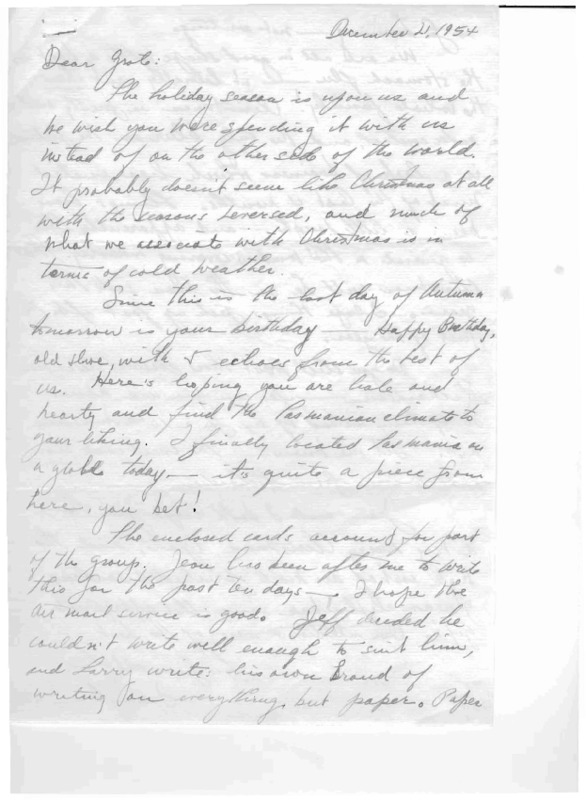 December 21, 1954
Dear Grote:
The holiday season is upon us and
we wish you were spending it with us
instead of on the other side of the world.
It probably doesn't seem like Christmas at all
with the seasons reversed, and much of
what we associate with Christmas is in
terms of cold weather.
Since this is the last day of Autumn
tomorrow is your birthday — Happy Birthday,
old shoe, with echoes from the rest of
us. Here's hoping you are hale and
hearty and find the Tasmanian climate to
your liking. I finally located Tasmania on
a globe today — it's quite a piece from
here, you bet!
The enclosed cards account for part
of the group. Jean has been after me to write
this for the past ten days — I hope the
air mail service is good. Jeff decided he
couldn't write well enough to suit him,
and Larry writes his own brand of
writing on everything but paper. Paper